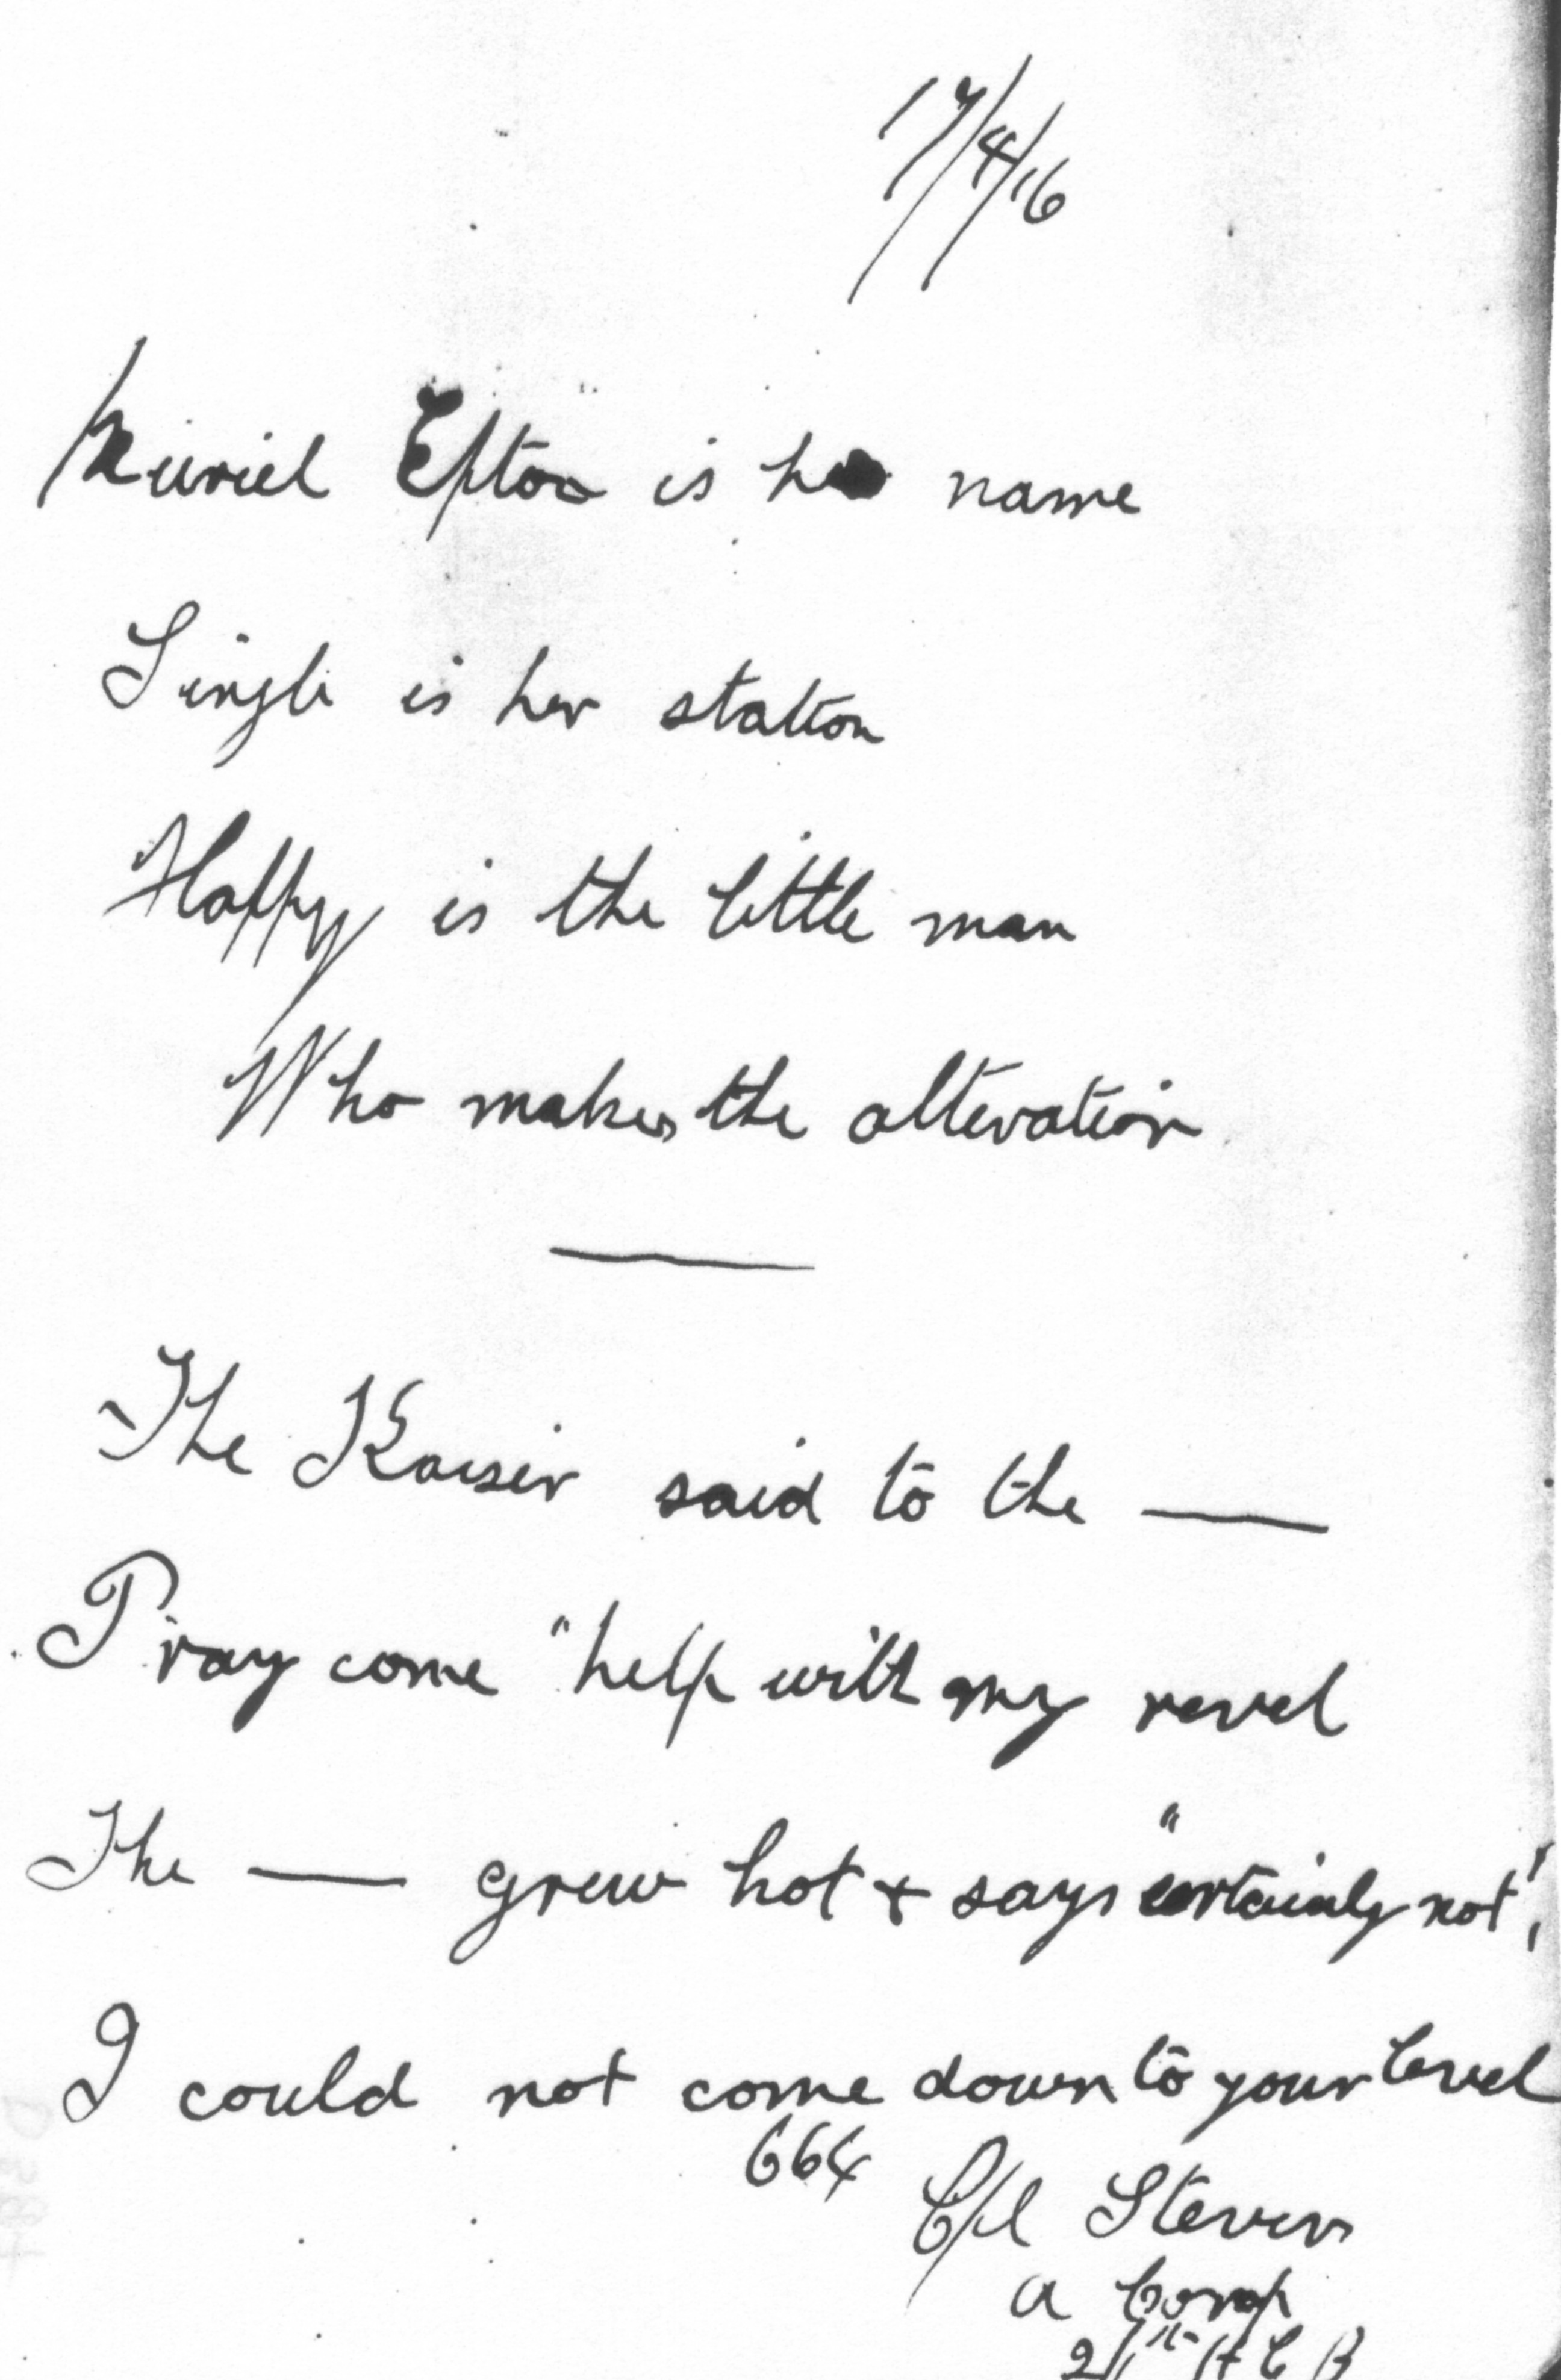 17/4/16
Muriel Epton is her name
Single is her station
Happy is the little man
Who makes the alteration
The Kaiser said to the —
Pray come "help with my revel
The — grew hot & says "certainly not",
I could not come down to your level
664
Cpl Stevens
A Comp